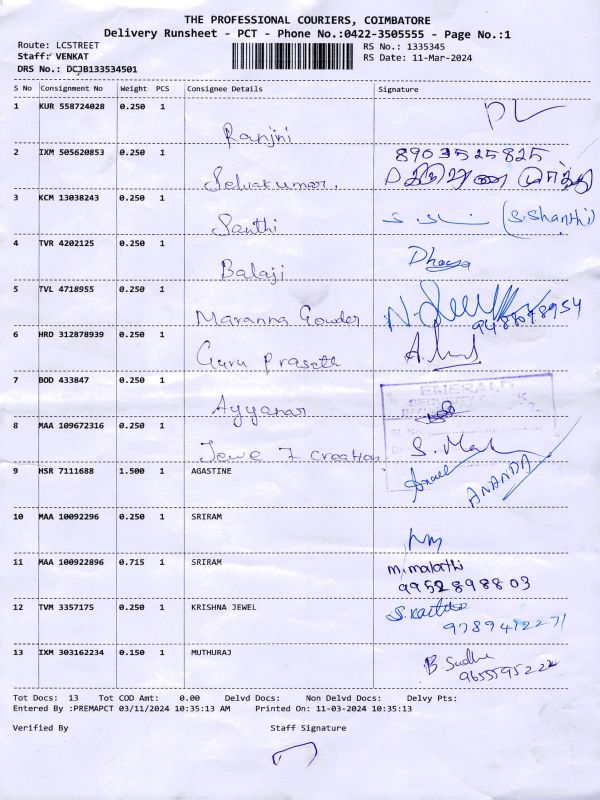 THE PROFESSIONAL COURIERS, COIMBATORE
Delivery Runsheet - PCT - Phone No.:0422-3505555 - Page No.:1
Route: LCSTREET RS No.: 1335345
Staff: VENKAT RS Date: 11-Mar-2024
DRS No.: DCJB133534501
S No Consignment No Weight PCS Consignee Details Signature
1 KUR 558724028 0.250 1
Ranjini
2 IXM 505620853 0.250 1 8903525825
Selvakumar.
3 KCM 13038243 0.250 1 (S.Shanthi)
Santhi
4 TVR 4202125 0.250 1
Balaji
5 TVL 4718955 0.250 1
Maranna Gowder 9488078954
6 HRD 312878939 0.250 1
Guru Prasath
7 BOD 433847 0.250 1 EMERALD
Ayyanar
8 MAA 109672316 0.250 1
Jewel Creation
9 HSR 7111688 1.500 1 AGASTINE ANANDA
10 MAA 10092296 0.250 1 SRIRAM
11 MAA 100922896 0.715 1 SRIRAM m.malathi
9952898803
12 TVM 3357175 0.250 1 KRISHNA JEWEL
9789412271
13 IXM 303162234 0.150 1 MUTHURAJ B. Sudha
9655595222
Tot Docs: 13 Tot COD Amt: 0.00 Delvd Docs: Non Delvd Docs: Delvy Pts:
Entered By :PREMAPCT 03/11/2024 10:35:13 AM Printed On: 11-03-2024 10:35:13
Verified By Staff Signature